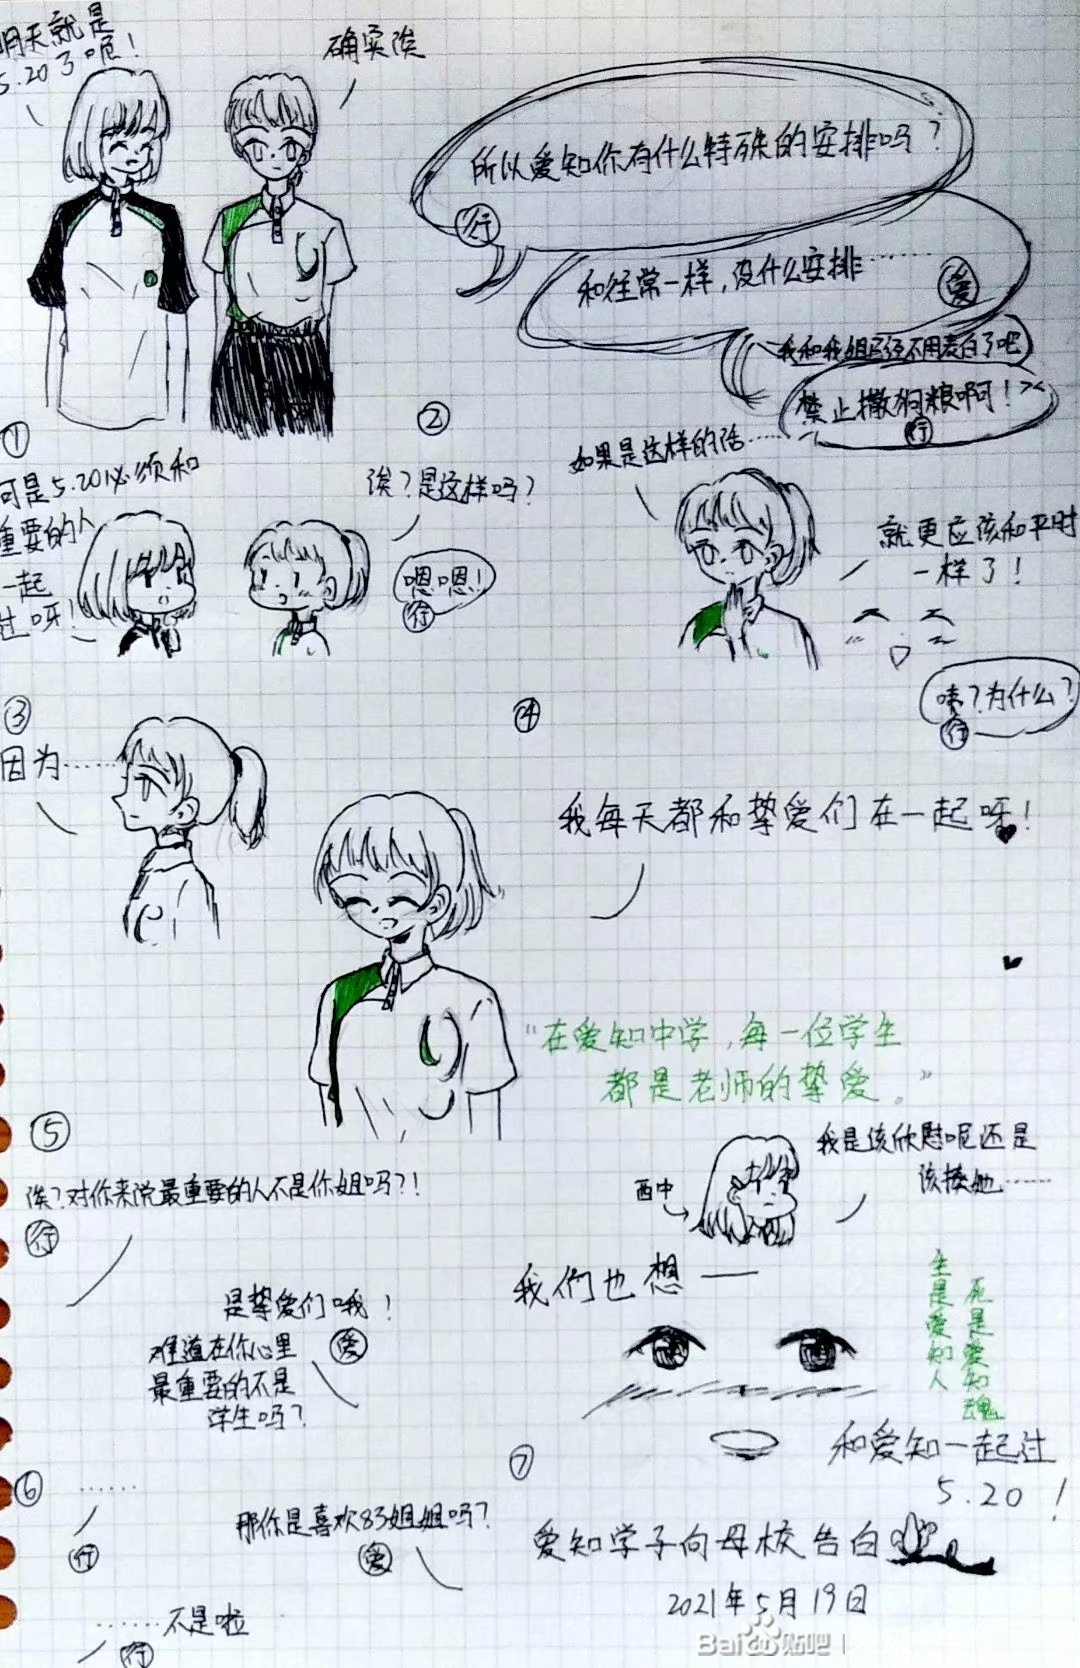 明天就是
5.20了呢！
确实诶
所以爱知你有什么特殊的安排吗？
行
和往常一样,没什么安排……
爱
我和我姐已经不用表白了吧
禁止撒狗粮啊！><
行
①
②
可是5.20必须和
重要的人
一起
过呀！
诶？是这样吗？
嗯嗯！
行
如果是这样的话……
就更应该和平时
一样了！
咦？为什么？
行
③
④
因为……
我每天都和挚爱们在一起呀！
“在爱知中学,每一位学生
都是老师的挚爱。”
⑤
诶？对你来说最重要的人不是你姐吗？！
行
是挚爱们哦！
爱
难道在你心里
最重要的不是
学生吗？
西中
我是该欣慰呢还是
该揍她……
我們也想——
生是爱知人
死是爱知魂
和爱知一起过
5.20！
⑥
⑦
……
行
那你是喜欢83姐姐吗？
爱
……不是啦
行
爱知学子向母校告白
2021年5月19日
Bai贴吧